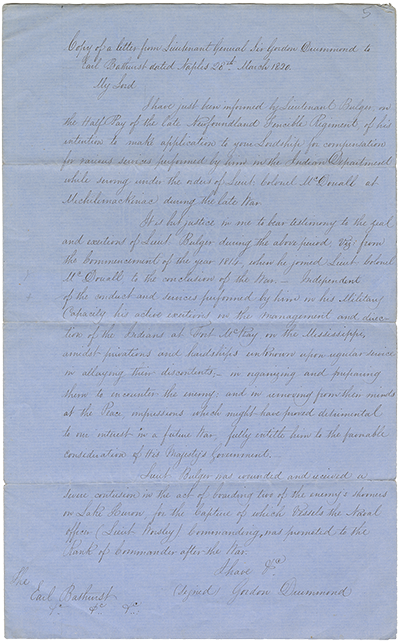 5
Copy of a letter from Lieutenant General Sir Gordon Drummond to
Earl Bathurst dated Naples 26th March 1820.
My Lord
I have just been informed by Lieutenant Bulger, on
the Half Pay of the late Newfoundland Fencible Regiment, of his
intention to make application to your Lordship for compensation
for various services performed by him in the Indian Department
while serving under the orders of Lieut. Colonel McDouall at
Michilimackinac during the late War.
It is but justice in me to bear testimony to the zeal
and exertions of Lieut. Bulger during the above period viz from
the Commencement of the year 1814 when he joined Lieut. Colonel
McDouall to the conclusion of the War. — Independent
of the conduct and services performed by him in his Military
Capacity his active exertions in the management and direc-
tion of the Indians at Fort McKay on the Mississippi,
amidst privations and hardships unknown upon regular service
in allaying their discontents; — in organizing and preparing
them to encounter the enemy, and in removing from their minds
at the Peace, impressions which might have proved detrimental
to our interest in a future War, fully entitle him to the favorable
consideration of His Majesty's Government.
Lieut. Bulger was wounded and received a
severe contusion in the act of boarding two of the enemy's schooners
in Lake Huron for the Capture of which Vessels the Naval
officer (Lieut. Worsley) Commanding, was promoted to the
Rank of Commander after the War.
I have &ca
(signed) Gordon Drummond
The
Earl Bathurst
&c. &c. &c.